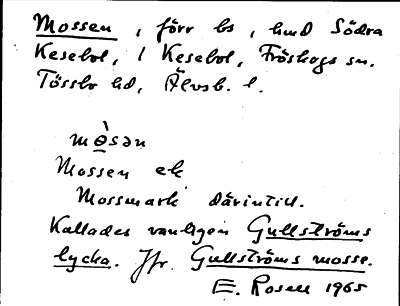 Mossen, förr bs, hmd Södra
Kesebol, 1 Kesebol, Fröskogs sn.
Tössbo hd, Älvsb. l.
mo̠̊̀sən
Mossen ek
Mossmark därintill.
Kallades vanligen Gullströms
lycka. Jfr. Gullströms mosse.
E. Rosell 1965